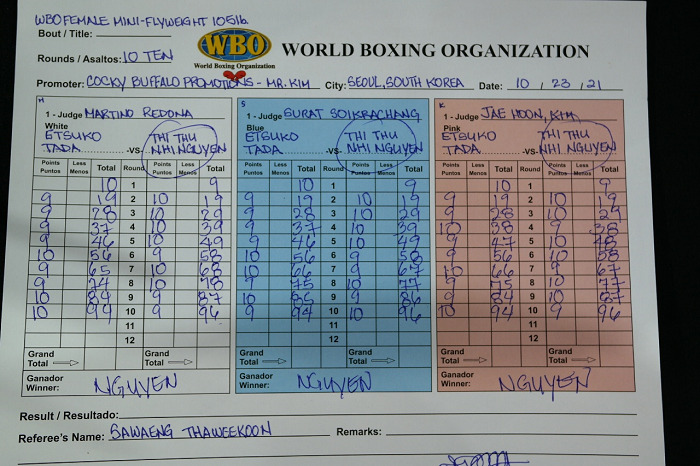 WBO FEMALE MINI-FLYWEIGHT 105 lb
Bout / Title:
WBO
World Boxing Organization
WORLD BOXING ORGANIZATION
Rounds / Asaltos: 10 TEN
Promoter: COCKY BUFFALO PROMOTIONS - MR. KIM City: SEOUL, SOUTH KOREA Date: 10 / 23 / 21
M S K
1 - Judge MARTINO REDONA 1 - Judge SURAT SOIKRACHANG 1 - Judge JAE HOON, KIM
White Blue Pink
ETSUKO TADA -VS- THI THU NHI NGUYEN ETSUKO TADA -VS- THI THU NHI NGUYEN ETSUKO TADA -VS- THI THU NHI NGUYEN
Points Puntos Less Menos Total Round Points Puntos Less Menos Total Points Puntos Less Menos Total Round Points Puntos Less Menos Total Points Puntos Less Menos Total Round Points Puntos Less Menos Total
10 1 9 10 1 9 10 1 9
9 19 2 10 19 9 19 2 10 19 9 19 2 10 19
9 28 3 10 29 9 28 3 10 29 9 28 3 10 29
9 37 4 10 39 9 37 4 10 39 10 38 4 9 38
9 46 5 10 49 9 46 5 10 49 9 47 5 10 48
10 56 6 9 58 10 56 6 9 58 9 56 6 10 58
9 65 7 10 68 10 66 7 9 67 10 66 7 9 67
9 74 8 10 78 9 75 8 10 77 9 75 8 10 77
10 84 9 9 87 10 85 9 9 86 9 84 9 10 87
10 94 10 9 96 9 94 10 10 96 10 94 10 9 96
11 11 11
12 12 12
Grand Total Grand Total Grand Total Grand Total Grand Total Grand Total
Ganador Winner: NGUYEN Ganador Winner: NGUYEN Ganador Winner: NGUYEN
Result / Resultado:
Referee's Name: SAWAENG THAWEEKOON Remarks: